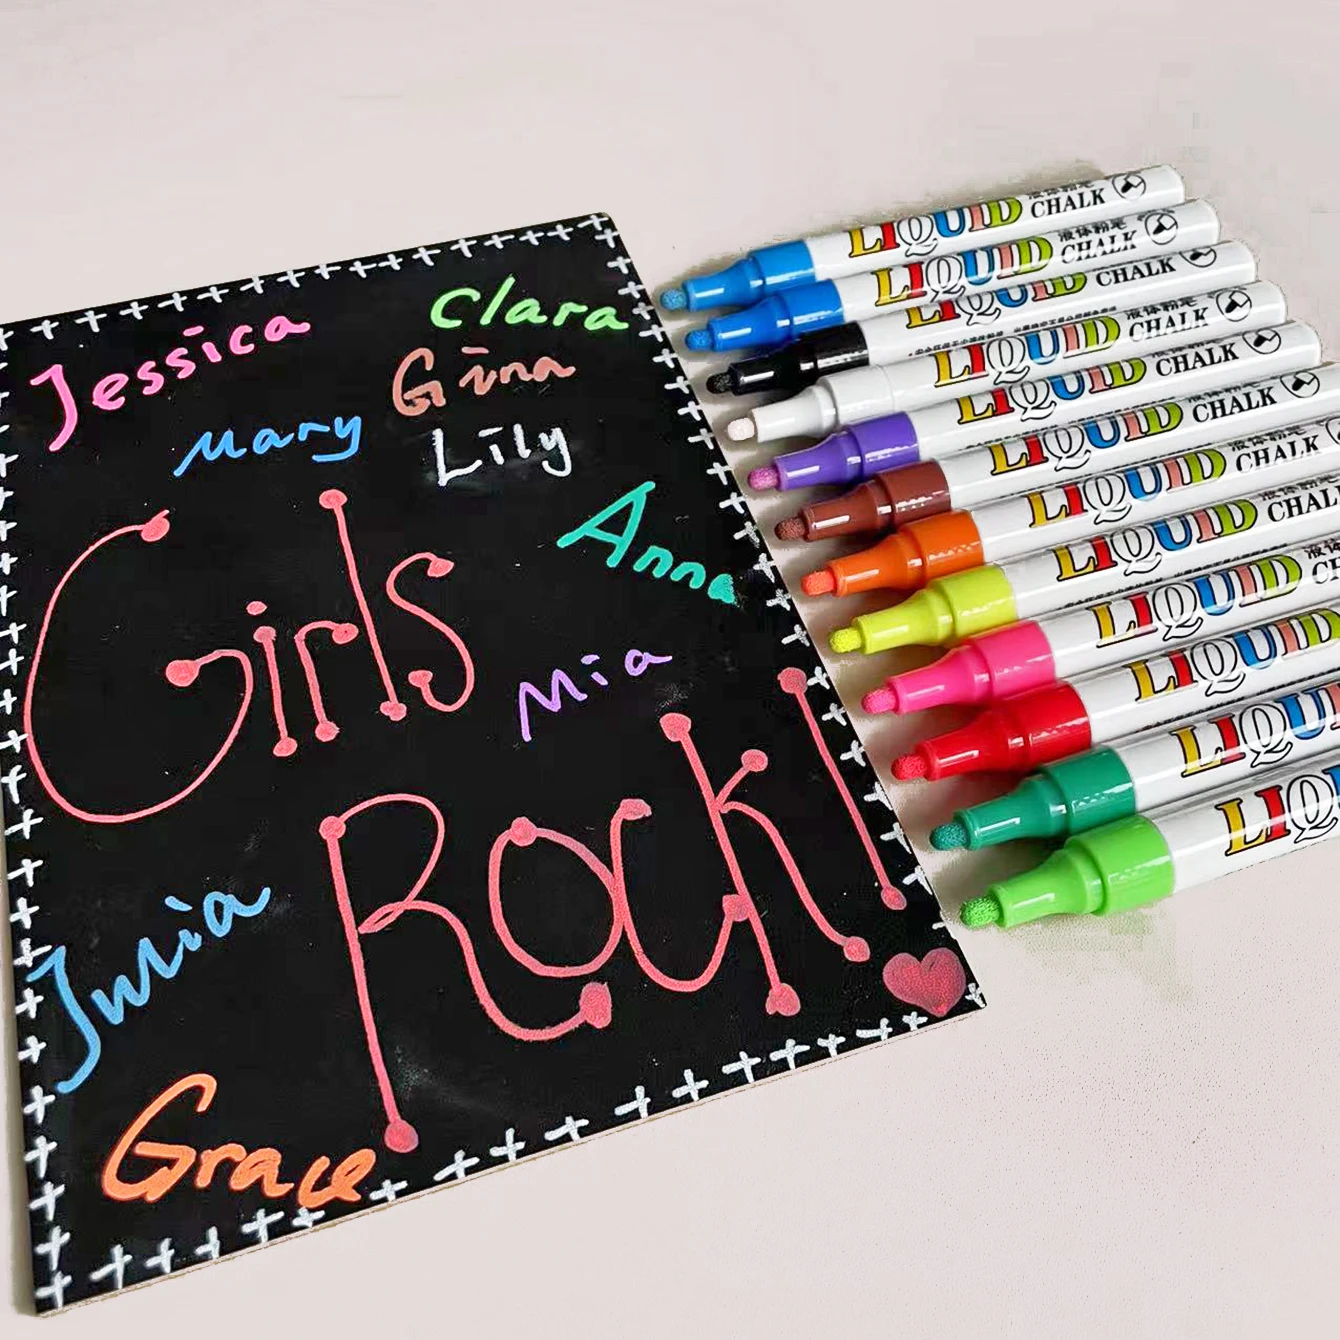 Jessica
Clara
Gina
Mary
Lily
Anna
Girls
Mia
Rock!
Julia
Grace
LIQUID CHALK
液体粉笔
LIQUID CHALK
液体粉笔
LIQUID CHALK
LIQUID CHALK
液体粉笔
LIQUID CHALK
LIQUID CHALK
液体粉笔
LIQUID CHALK
液体粉笔
LIQUID CHAL
LIQUID
LIQUID
LIQUI
LIQ